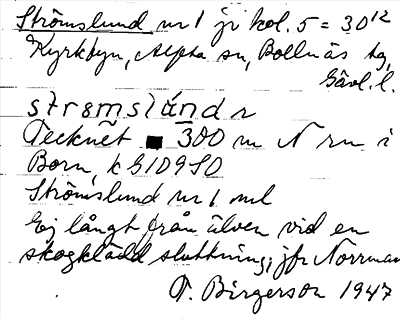 Strömslund nr 1 jr kol. 5 = 30¹²
Kyrkbyn, Alfta sn, Bollnäs tg,
Gävl. l.
strømslánd n
Tecknet ■ 300 m N rm i
Born, k G 109 SO
Strömslund nr 1 ml
Ej långt från älven vid en
skogklädd sluttning, jfr Norrman
T. Birgerson 1947